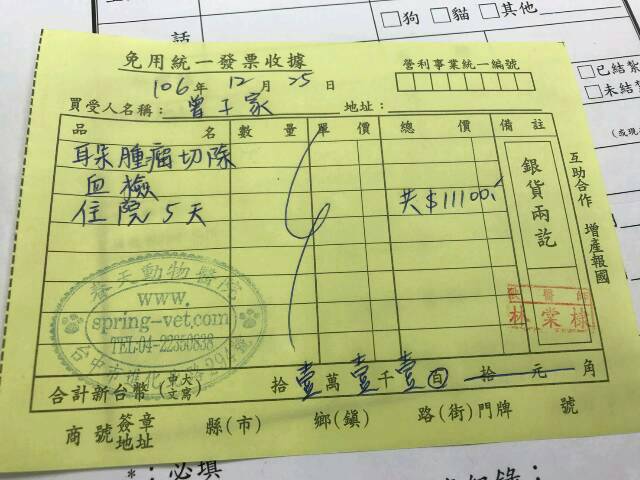 □狗 □貓 □其他
話
□已結紮
□未結紮
免用統一發票收據
106年 12月 25日
營利事業統一編號
買受人名稱: 曾子家 地址:
品名 數量 單價 總價 備註
耳朶腫瘤切除
血檢
住院5天 共$11100.
銀貨兩訖
互助合作 增產報國
春天動物醫院
www.
spring-vet.com
TEL:04-22350838
獸醫師
林棠棣
合計新台幣(中文大寫) 拾壹萬壹千壹百拾元角
商號簽章地址 縣(市) 鄉(鎮) 路(街)門牌 號
*:必填